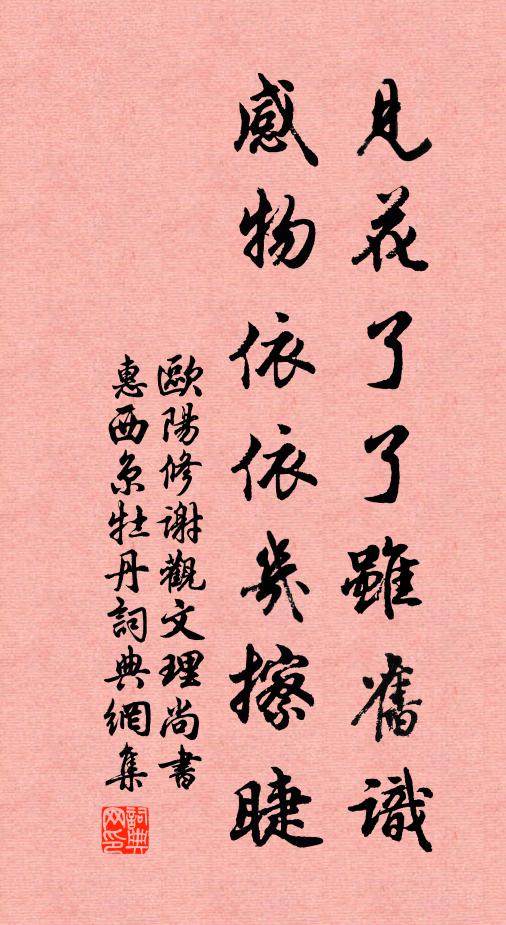 見花了了雖舊識
感物依依幾擦睫
歐陽修謝觀文理尚書
惠西京牡丹詞典網集
詞典网印